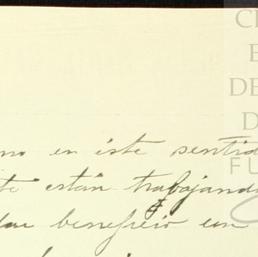 CE
E
DE
D
FU
no en este sentid
te están trabajand
dar beneficio con